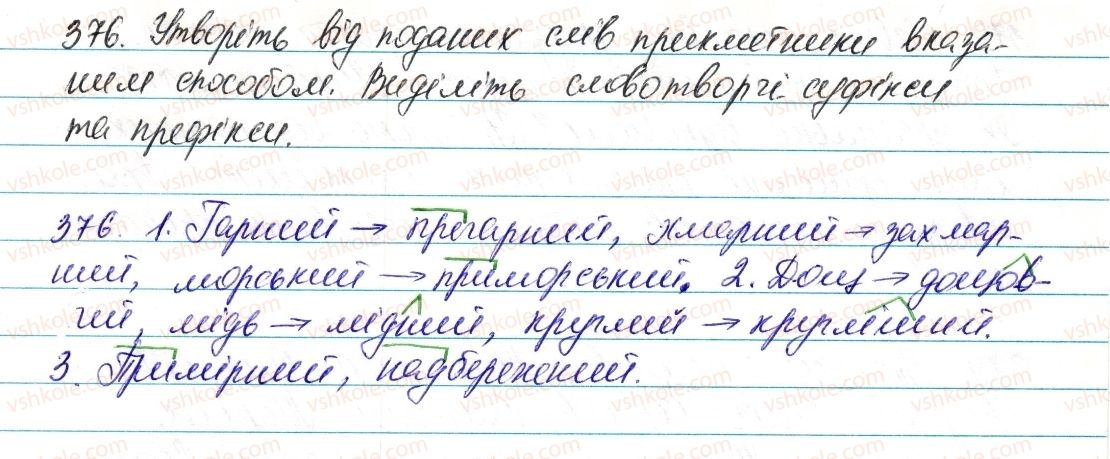 376. Утворіть від поданих слів прикметники вказа-
ним способом. Виділіть словотворчі суфікси
та префікси.
376. 1. Гарний → прегарний, хмарний → захмар-
ний, морський → приморський. 2. Дощ → дощов-
гий, мідь → мідний, круглий → кругліший.
3. Примірний, надбережний.
vshkole.com